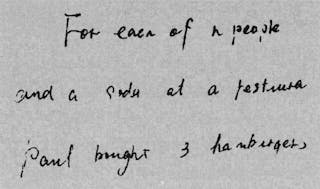 For each of n people
and a soda at a restura
Paul bought 3 hamburgers